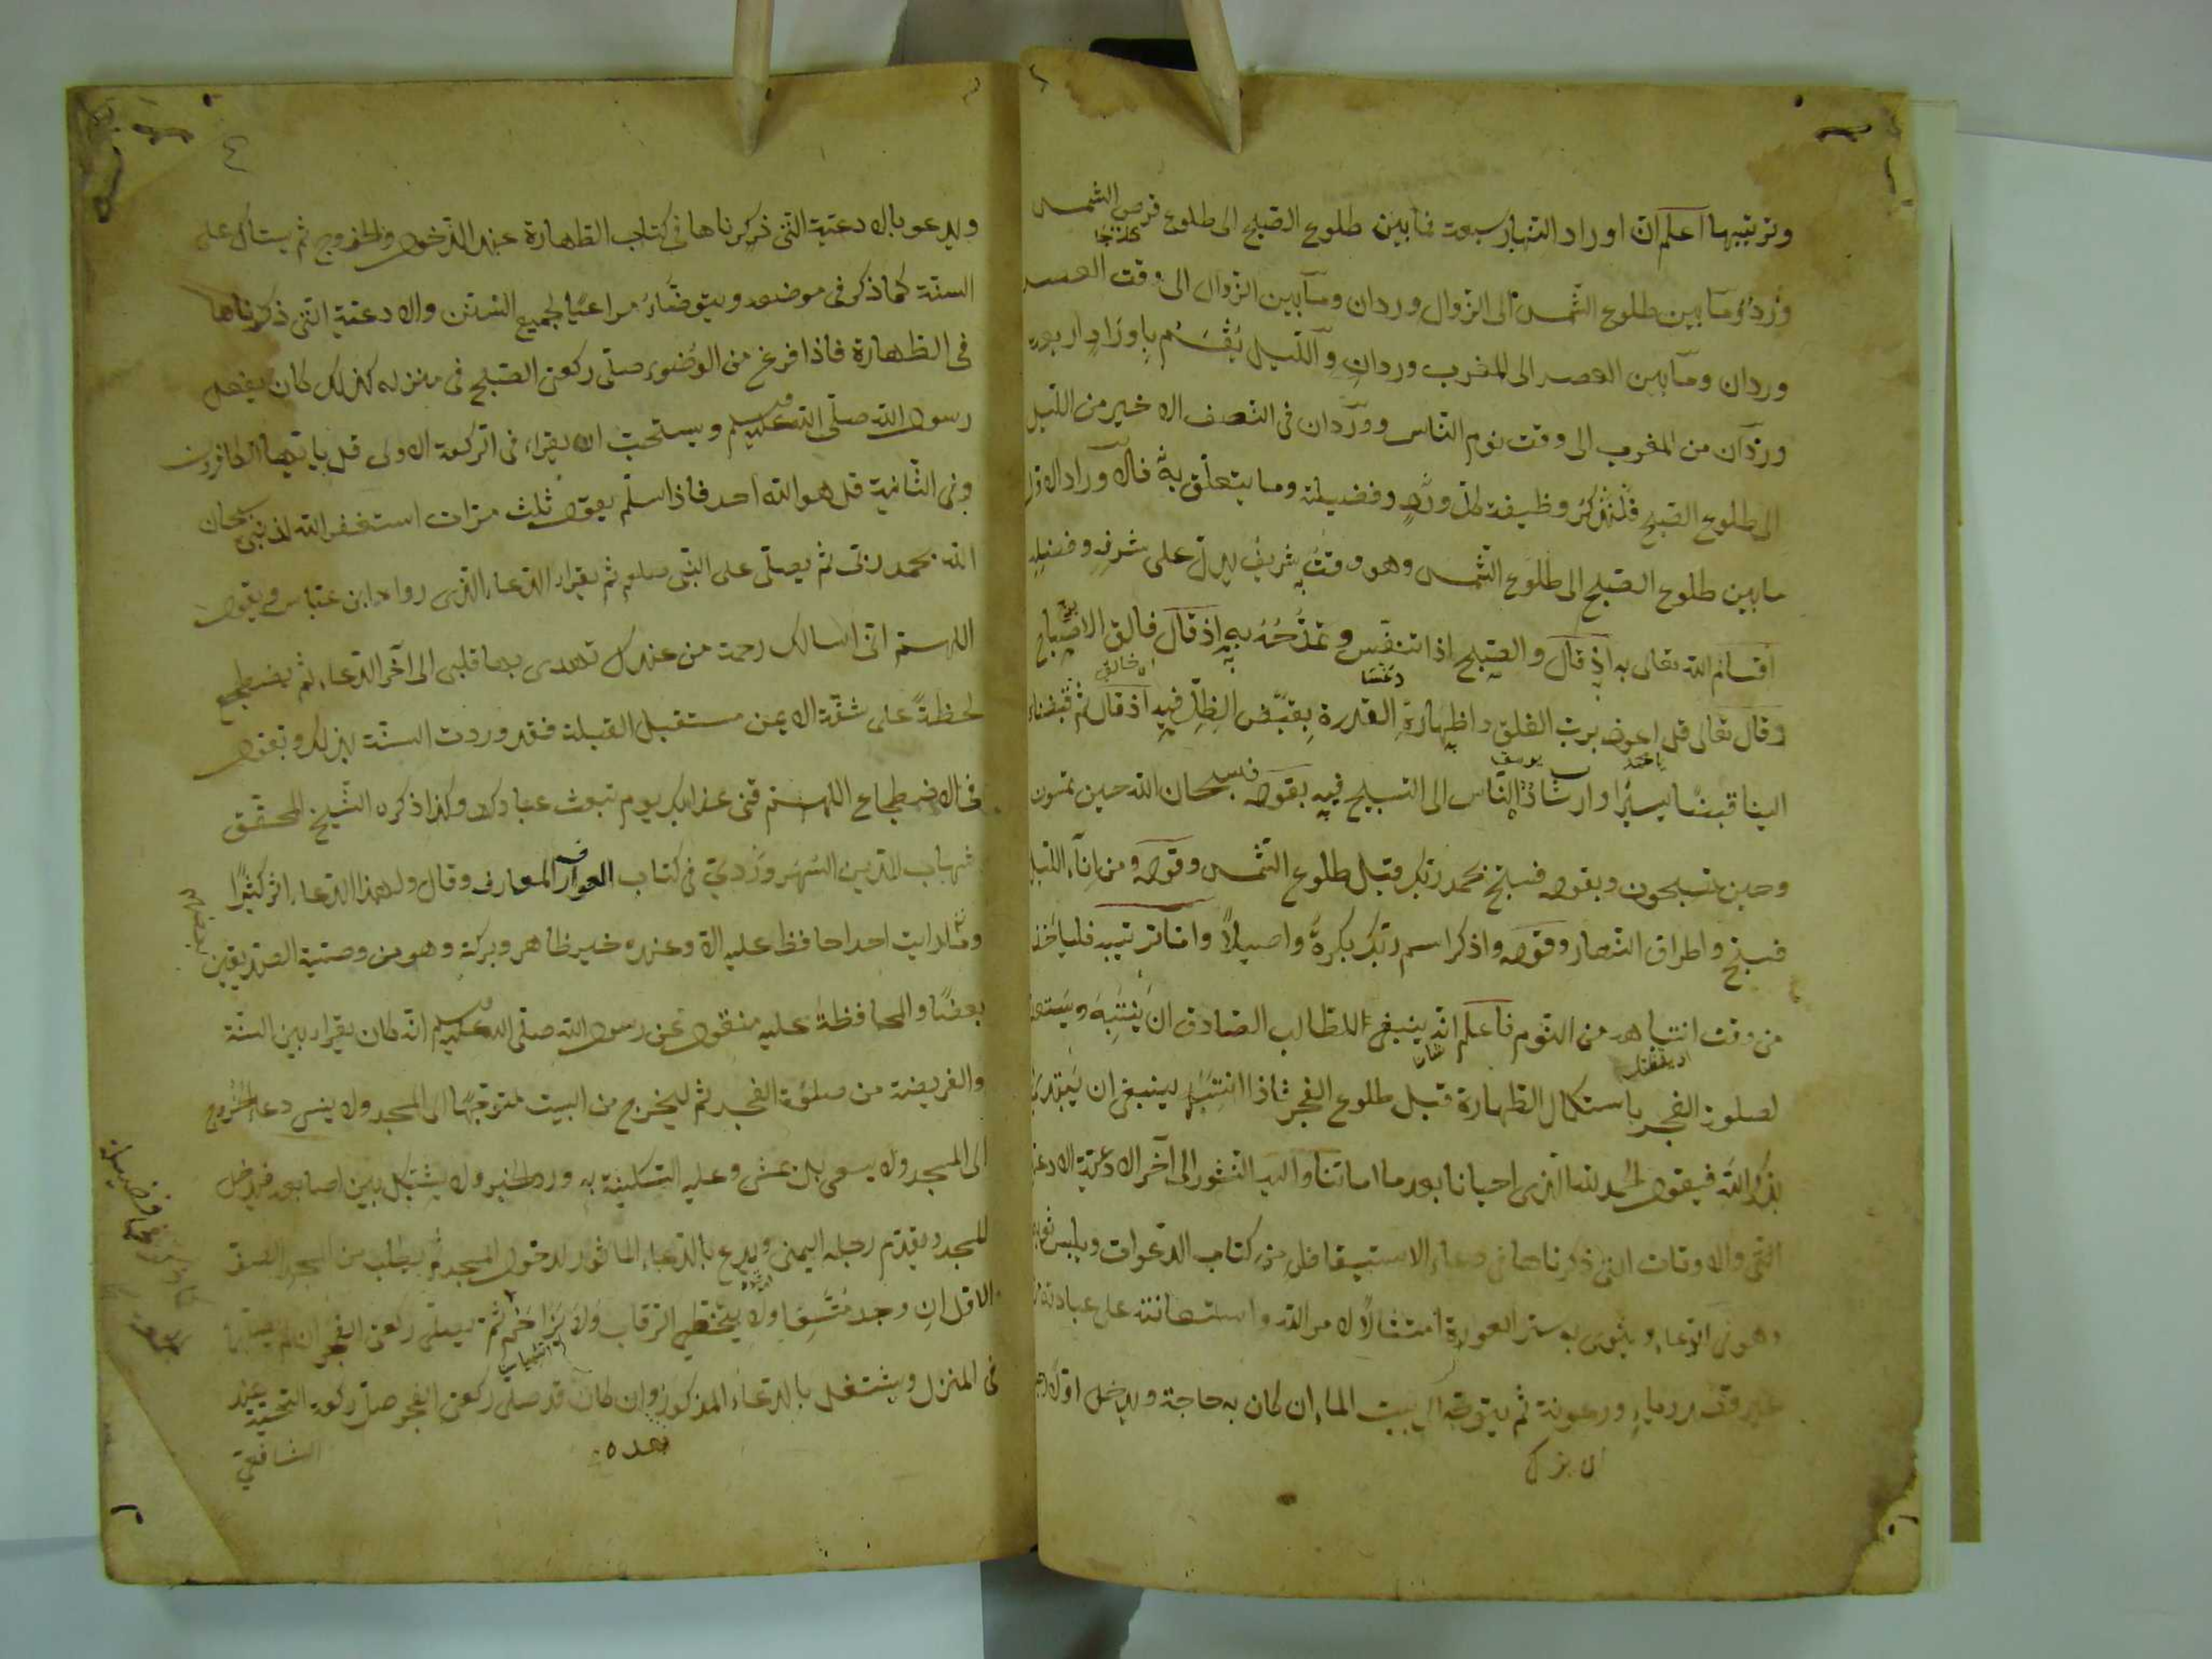 وترتيبها اعلم ان اوراد النهار سبعة فما بين طلوع الصبح الى طلوع قرص الشمس
ورد وما بين طلوع الشمس الى الزوال وردان وما بين الزوال الى وقت العصر
وردان وما بين العصر الى المغرب وردان والليل يقسم باوراد اربعة
وردان من المغرب الى وقت نوم الناس ووردان فى النصف الاخير من الليل
الى طلوع الصبح فلنذكر وظيفة كل ورد وفضيلته وما يتعلق به فالاوراد الاول
ما بين طلوع الصبح الى طلوع الشمس وهو وقت شريف يدل على شرفه وفضله
اقسام الله تعالى به اذ قال والصبح اذا تنفس وتمدحه به اذ قال فالق الاصباح
وقال تعالى قل اعوذ برب الفلق واظهاره القدرة بقبض الظل فيه اذ قال ثم قبضناه
الينا قبضا يسيرا وارشاده الناس الى التسبيح فيه بقوله فسبحان الله حين تمسون
وحين تصبحون وبقوله فسبح بحمد ربك قبل طلوع الشمس وقوله ومن اناء الليل
فسبح واطراف النهار وقوله واذكر اسم ربك بكرة واصيلا واما ترتيبه فلياخذ
من وقت انتباهه من النوم فاعلم انه ينبغى للطالب الصادق ان ينتبه ويستعد
لصلوة الفجر باستكمال الطهارة قبل طلوع الفجر فاذا انتبه ينبغى ان يبتدى
بذكر الله فيقول الحمد لله الذى احيانا بعد ما اماتنا واليه النشور الى آخر الادعية
التى والاوقات التى ذكرناها فى دعاء الاستيقاظ من كتاب الدعوات ويلبس ثوبه
وهو فى الدعاء وينوى به ستر العورة امتثالا لامر الله واستعانته على عبادته
غير رياء ورعونة ثم يتوجه الى بيت الماء ان كان به حاجة ويدخل اولا
ويدعو بالادعية التى ذكرناها فى كتاب الطهارة عند الدخول والخروج ثم يستاك على
السنة كما ذكر فى موضعه ويتوضاء مراعيا لجميع السنن والادعية التى ذكرناها
فى الطهارة فاذا فرغ من الوضوء صلى ركعتى الصبح فى منزله كذلك كان يفعل
رسول الله صلى الله عليه وسلم ويستحب ان يقراء فى الركعة الاولى قل يا ايها الكافرون
وفى الثانية قل هو الله احد فاذا سلم يقول ثلث مرات استغفر الله لذنبى سبحان
الله بحمد ربى ثم يصلى على النبى صلعم ثم يقراء الدعاء الذى رواه ابن عباس ويقول
اللهم انى اسالك رحمة من عندك تهدى بها قلبى الى آخر الدعاء ثم يضطجع
لحظة على شقه الايمن مستقبل القبلة فقد وردت السنة بذلك ويقول
فى الاضطجاع اللهم قنى عذابك يوم تبعث عبادك وكذا ذكره الشيخ المحقق
شهاب الدين السهروردى فى كتاب العوارف المعارف وقال ولهذا الدعاء اثر كثيرا
وما رايت احدا حافظ عليه الا وعنده خير ظاهر وبركة وهو من وصية الصديقين
بعضا والمحافظة عليه منقول عن رسول الله صلى الله عليه وسلم انه كان يقراء بين السنة
والفريضة من صلوة الفجر ثم ليخرج من البيت متوجها الى المسجد ولا ينس دعاء الخروج
الى المسجد ولا يسعى بل يمشى وعليه السكينة به ورد الخبر ولا يشبك بين اصابعه فيدخل
المسجد ويقدم رجله اليمنى ويدع بالدعاء الماثور لدخول المسجد ثم يطلب من المسجد الصف
الاول ان وجد متسعا ولا يتخطى الرقاب ولا يزاحم ثم يصلى ركعتى الفجر ان لم يصلها
فى المنزل ويشتغل بالدعاء المذكور وان كان قد صلى ركعتى الفجر صلى ركعة التحية عند
الشافعى
بعده